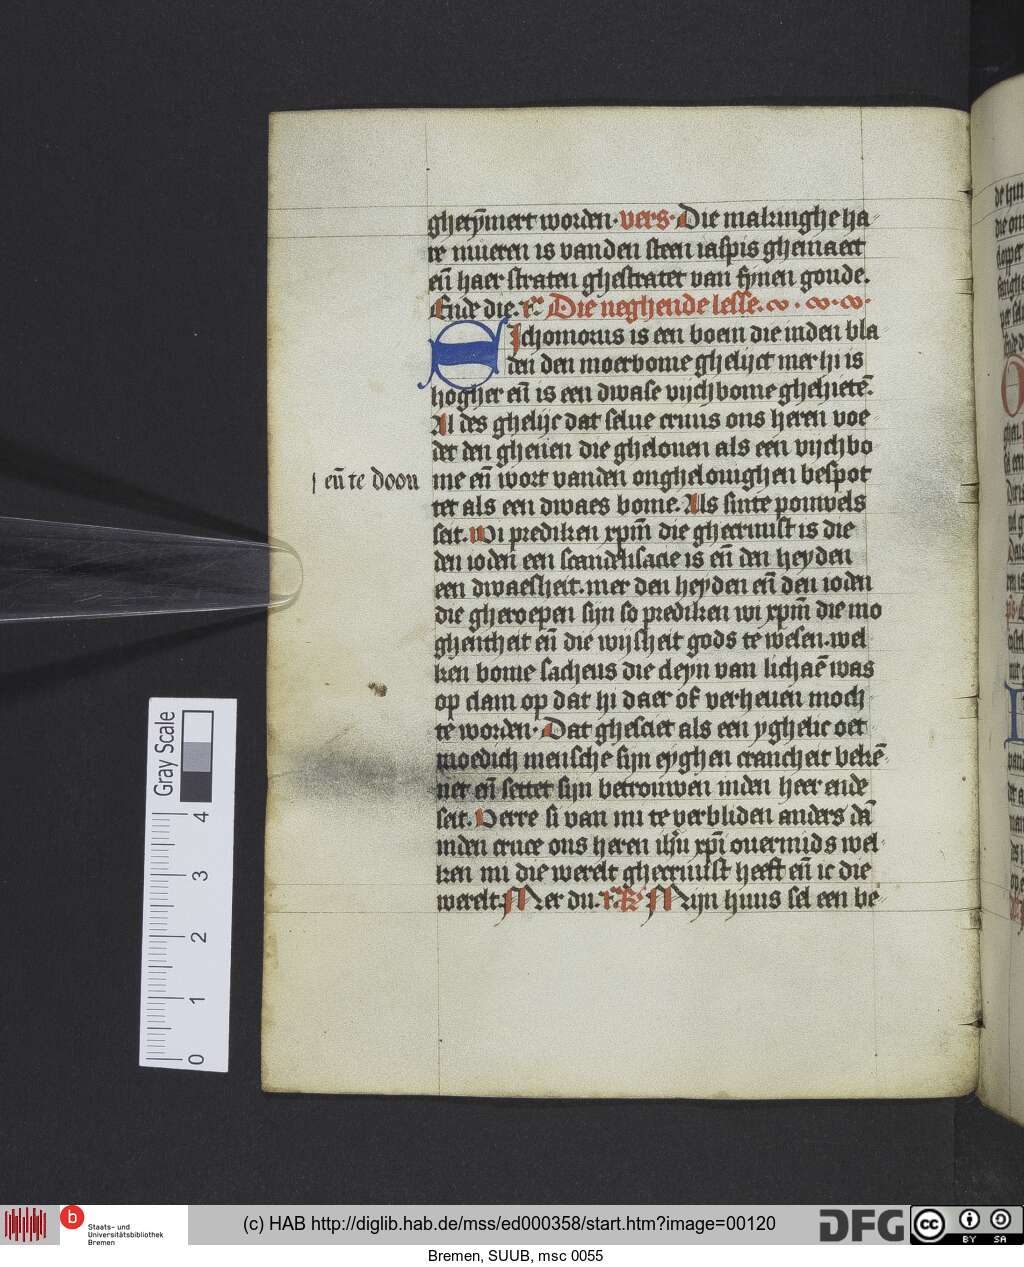 gherym̄ert worden· vers· Die makinghe ha
re mueren is vanden steen iaspis ghemaect
en̄ haer straten ghestratet van fynen goude.
Ende die. r̄. Die neghende lesse.
Sichomorus is een boem die inden bla
den den moerbome ghelijct mer hi is
hogher en̄ is een dwase vijchbome ghehietē.
Al des ghelijc dat selue cruus ons heren voe
det den ghenen die ghelouen als een vijchbo
| en̄ te doon
me en̄ wort vanden onghelouighen bespot
tet als een dwaes bome. Als sinte pouwels
seit. Wi prediken xpm̄ die ghecruust is die
den ioden een scandelisacie is en̄ den heyden
een dwaesheit. mer den heyden en̄ den ioden
die gheroepen sijn so prediken wi xpm̄ die mo
ghentheit en̄ die wijsheit gods te wesen. wel
ken bome sacheus die cleyn van lichaē was
op clam op dat hi daer of verheuen moch
te worden· Dat ghesciet als een yghelic oet
moedich mensche sijn eyghen crancheit bekē
net en̄ settet sijn betrouwen inden heer ende
seit. Verre si van mi te verbliden anders dā
inden cruce ons heren ihū xpi ouermids wel
ken mi die werelt ghecruust heeft en̄ ic die
werelt. Mer du. r̄. Mijn huus sel een be
Gray Scale
0 1 2 3 4
b
Staats- und
Universitätsbibliothek
Bremen
(c) HAB http://diglib.hab.de/mss/ed000358/start.htm?image=00120
DFG
cc BY SA
Bremen, SUUB, msc 0055